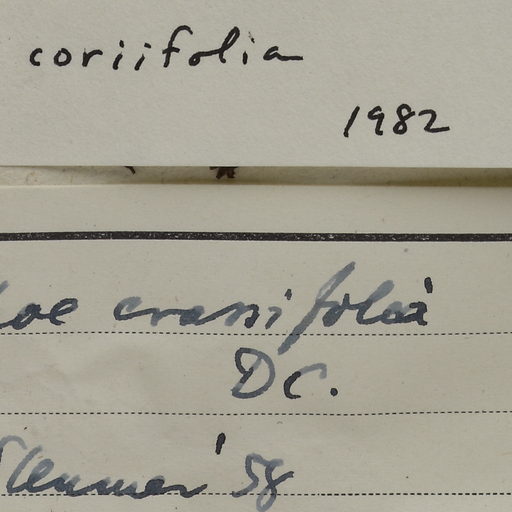 coriifolia
1982
loe crassifolia
DC.
Sleumer '58